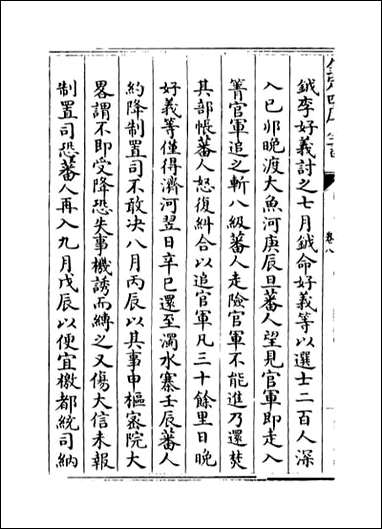 欽定四庫全書
卷八
鉞李好義討之七月鉞命好義等以選士二百人深
入己卯晚渡大魚河庚辰旦蕃人望見官軍即走入
箐官軍追之斬八級蕃人走險官軍不能進乃還焚
其部帳蕃人怒復糾合以追官軍凡三十餘里日晚
好義等僅得濟河翌日辛巳還至濁水寨壬辰蕃人
約降制置司不敢决八月丙辰以其事申樞宻院大
畧謂不即受降恐失事機誘而縛之又傷大信未報
制置司恐蕃人再入九月戊辰以便宜檄都統司納